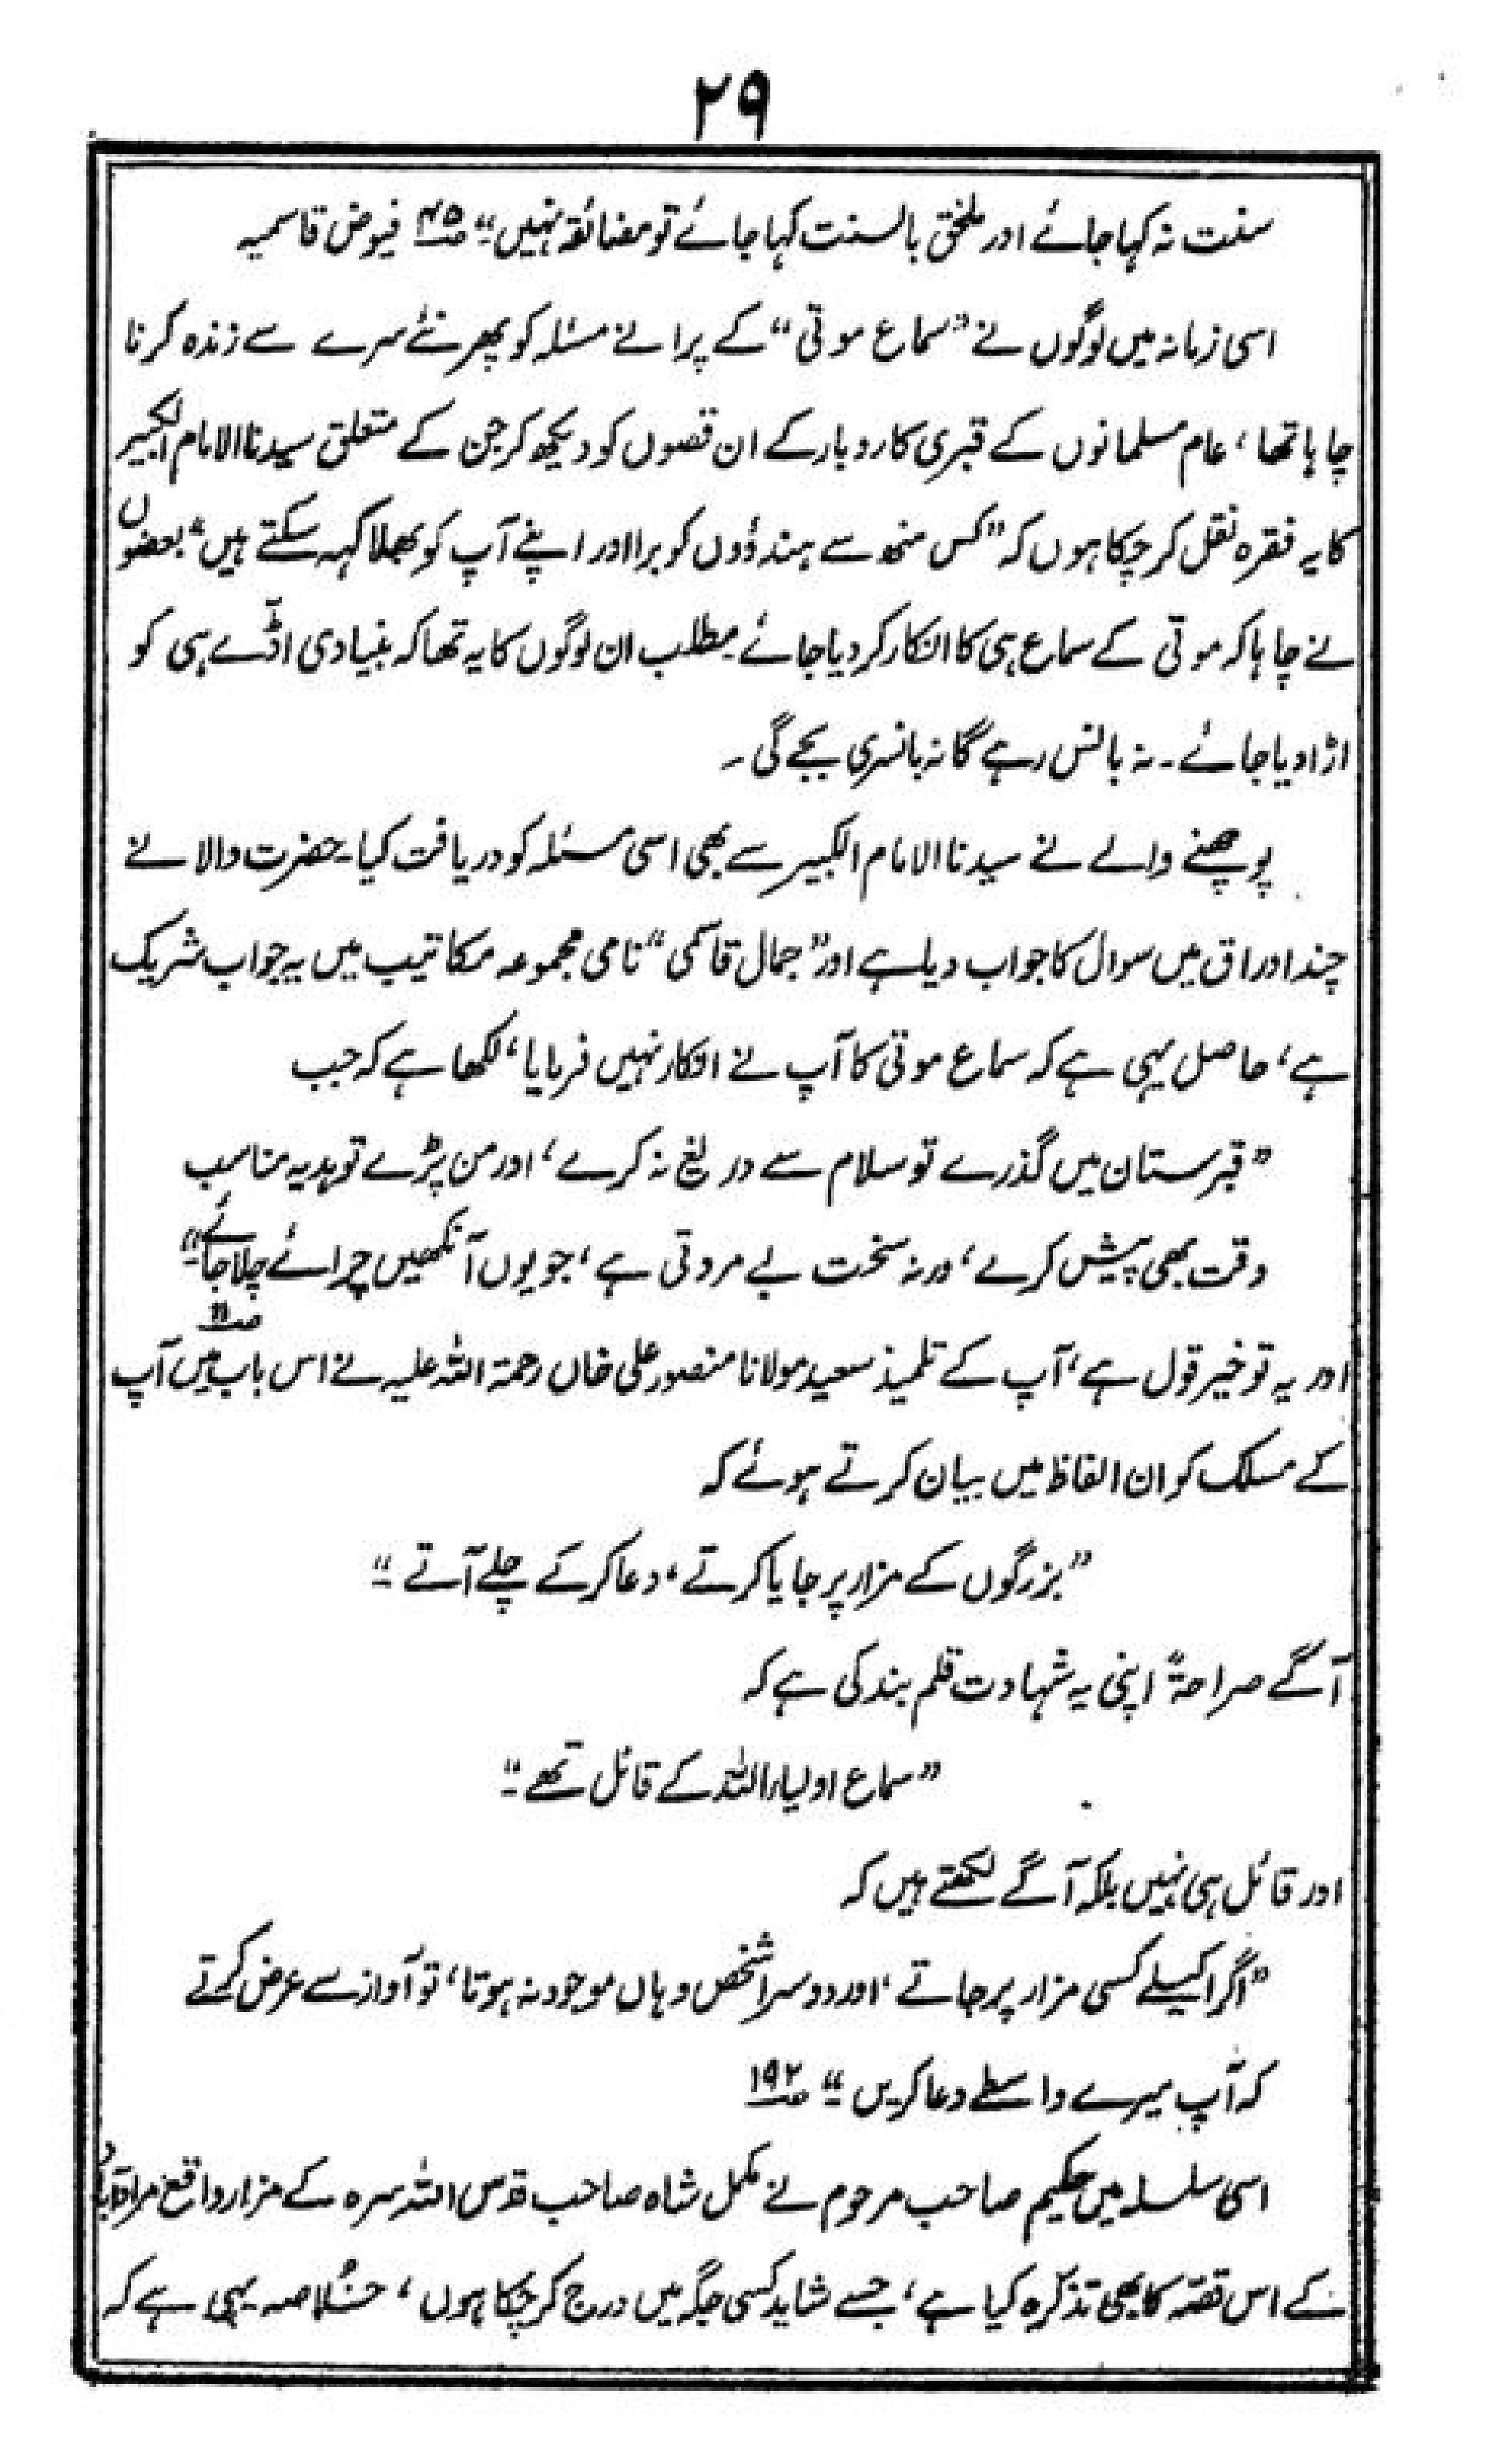 ۲۹
سنت نہ کہا جائے اور ملحق بالسنت کہا جائے تو مضائقہ نہیں“ ص۴۵ فیوض قاسمیہ
اسی زمانہ میں لوگوں نے ”سماع موتی“ کے پرانے مسئلہ کو پھر نئے سرے سے زندہ کرنا
چاہا تھا، عام مسلمانوں کے قبری کاروبار کے ان قصوں کو دیکھ کر جن کے متعلق سیدنا الامام الکبیر
کا یہ فقرہ نقل کر چکا ہوں کہ ”کس منھ سے ہندوؤں کو برا اور اپنے آپ کو بھلا کہہ سکتے ہیں“ بعضوں
نے چاہا کہ موتی کے سماع ہی کا انکار کر دیا جائے۔ مطلب ان لوگوں کا یہ تھا کہ بنیادی اڈّے ہی کو
اڑا دیا جائے۔ نہ بانس رہے گا نہ بانسری بجے گی۔
پوچھنے والے نے سیدنا الامام الکبیر سے بھی اسی مسئلہ کو دریافت کیا۔ حضرت والا نے
چند اوراق میں سوال کا جواب دیا ہے اور ”جمال قاسمی“ نامی مجموعہ مکاتیب میں یہ جواب شریک
ہے، حاصل یہی ہے کہ سماع موتی کا آپ نے انکار نہیں فرمایا، لکھا ہے کہ جب
”قبرستان میں گذرے تو سلام سے دریغ نہ کرے، اور من پڑے تو ہدیہ مناسب
وقت بھی پیش کرے، ورنہ سخت بے مروتی ہے، جو یوں آنکھیں چرائے چلا جائے“
ص۱۱
اور یہ تو خیر قول ہے، آپ کے تلمیذ سعید مولانا منصور علی خاں رحمۃ اللہ علیہ نے اس باب میں آپ
کے مسلک کو ان الفاظ میں بیان کرتے ہوئے کہ
”بزرگوں کے مزار پر جایا کرتے، دعا کر کے چلے آتے“
آگے صراحۃً اپنی یہ شہادت قلم بند کی ہے کہ
”سماع اولیاء اللہ کے قائل تھے“
اور قائل ہی نہیں بلکہ آگے لکھتے ہیں کہ
”اگر اکیلے کسی مزار پر جاتے، اور دوسرا شخص وہاں موجود نہ ہوتا، تو آواز سے عرض کرتے
کہ آپ میرے واسطے دعا کریں“ ص۱۹۲
اسی سلسلہ میں حکیم صاحب مرحوم نے مکمل شاہ صاحب قدس اللہ سرہ کے مزار واقع مرادآباد
کے اس قصّہ کا بھی تذکرہ کیا ہے، جسے شاید کسی جگہ میں درج کر چکا ہوں، خُلاصہ یہی ہے کہ